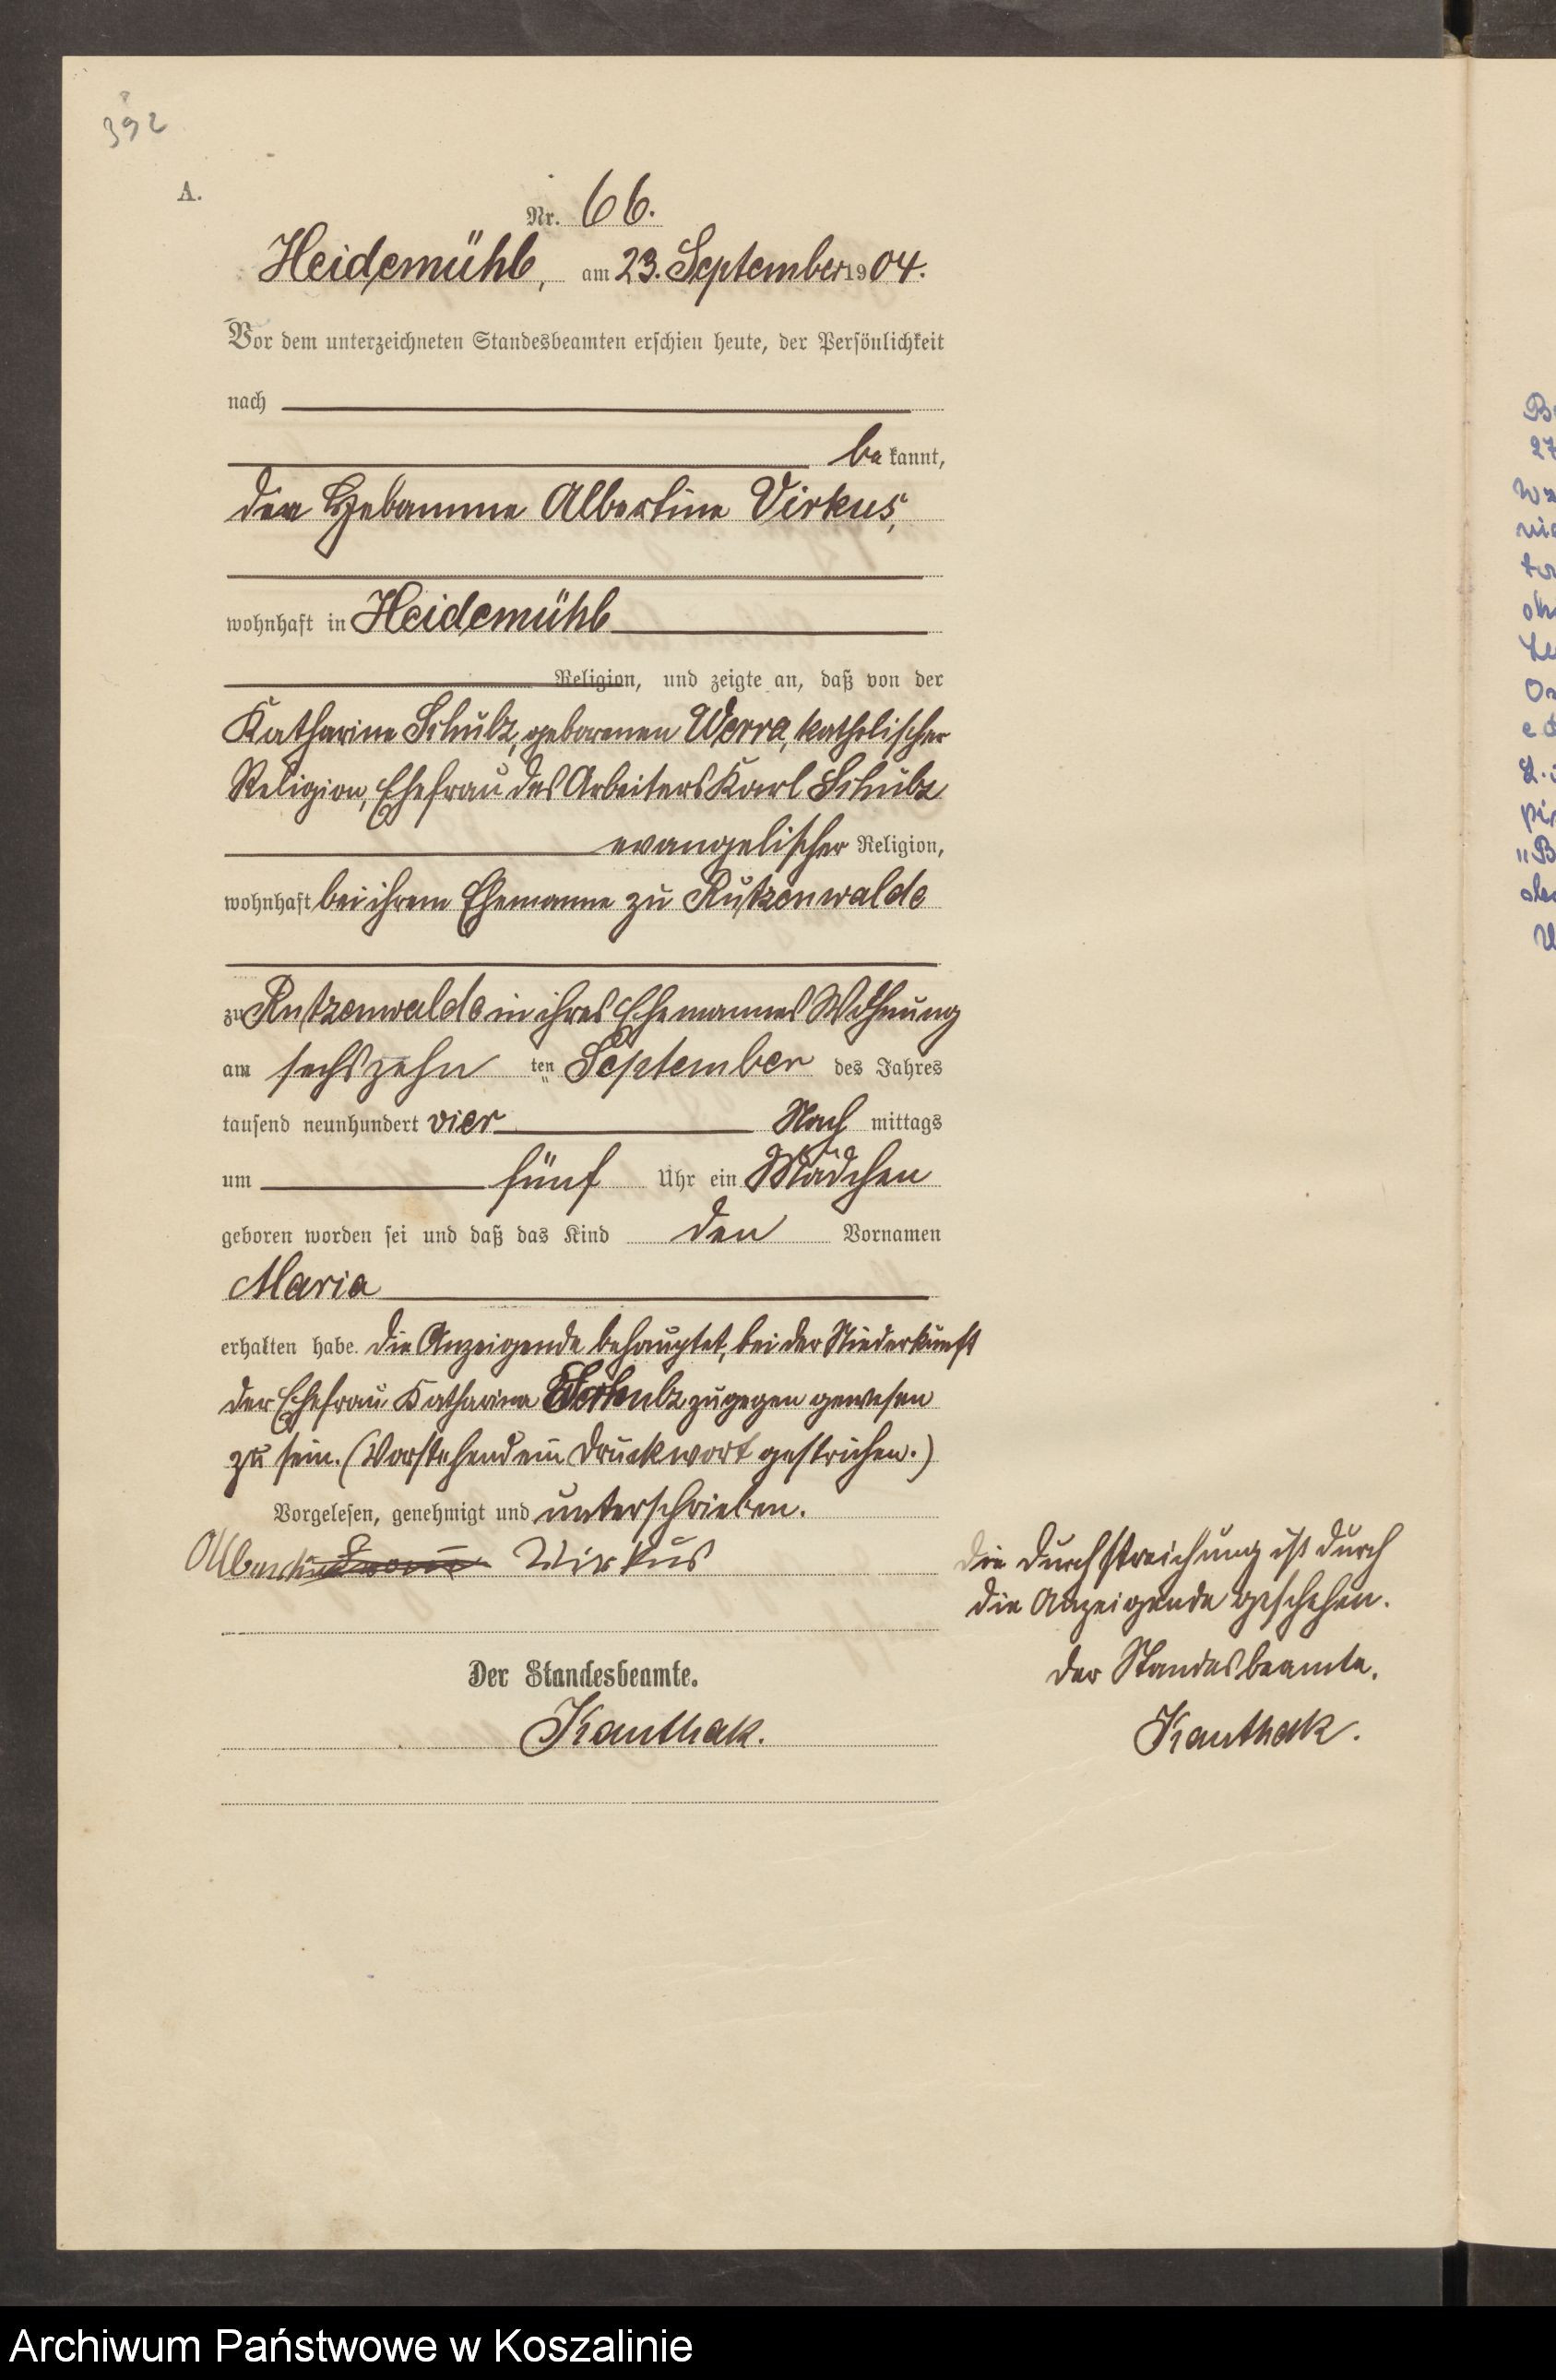 392
A.
Nr. 66.
Heidemühl, am 23. September 1904.
Vor dem unterzeichneten Standesbeamten erschien heute, der Persönlichkeit
nach
be kannt,
die Hebamme Albertine Virkus,
wohnhaft in Heidemühl
Religion, und zeigte an, daß von der
Katharine Schulz, geborenen Werra, katholischer
Religion, Ehefrau des Arbeiters Karl Schulz
evangelischer Religion,
wohnhaft bei ihrem Ehemanne zu Rutzenwalde
zu Rutzenwalde in ihres Ehemannes Wohnung
am sechszehn ten September des Jahres
tausend neunhundert vier Nach mittags
um fünf Uhr ein Mädchen
geboren worden sei und daß das Kind den Vornamen
Maria
erhalten habe. Die Anzeigende behauptet, bei der Niederkunft
der Ehefrau Katharina Schulz zugegen gewesen
zu sein. (Vorstehend ein Druckwort gestrichen.)
Vorgelesen, genehmigt und unterschrieben.
Albertine Wirkus
Die Durchstreichung ist durch
die Anzeigende geschehen.
Der Standesbeamte.
Kauthak.
Der Standesbeamte.
Kauthak.
Archiwum Państwowe w Koszalinie